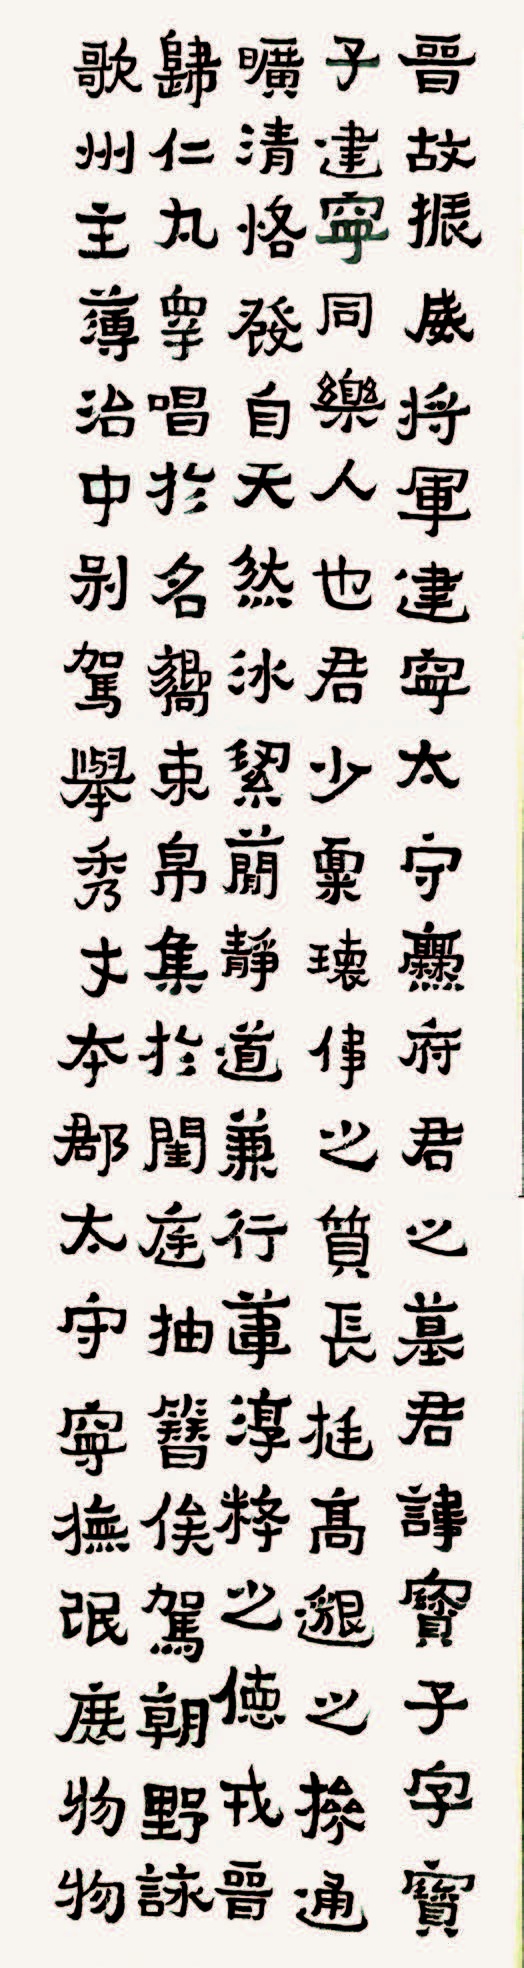 晉故振威將軍建寧太守爨府君之墓君諱寶子字寶
子建寧同樂人也君少稟瓌偉之質長挺高邈之操通
曠清恪發自天然冰絜簡靜道兼行葦淳粹之德戎晉
歸仁九皋唱於名嚮束帛集於閨庭抽簪俟駕朝野詠
歌州主簿治中別駕舉秀才本郡太守寧撫氓庶物物